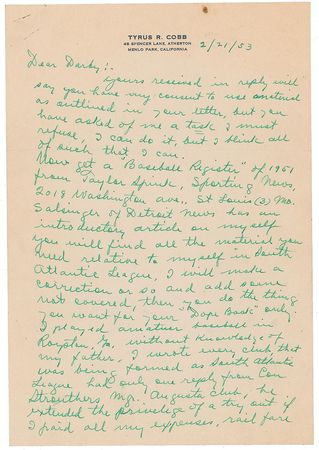 TYRUS R. COBB
48 SPENCER LANE, ATHERTON
MENLO PARK, CALIFORNIA
2/21/53
Dear Darby:-
Yours received in reply will
say you have my consent to use material
as outlined in your letter, but you
have asked of me a task I must
refuse, I can do it, but I think all
of such that I can.
Now get a "Baseball Register" of 1951
from Taylor Spink, Sporting News,
2018 Washington ave., St Louis (3) Mo.
Salsinger of Detroit News has an
introductory article on myself
you will find all the material you
need relative to myself in South
Atlantic League, I will make a
correction or so and add some
not covered, then you do the thing
you want for your "Dope Book" only.
I played amateur baseball in
Royston, Ga, without knowledge of
my father, I wrote every club that
was being formed as South Atlantic
League had only one reply from Con
Strouthers Mgr. Augusta club, he
extended the privelege of a try out if
I paid all my expenses, rail fare